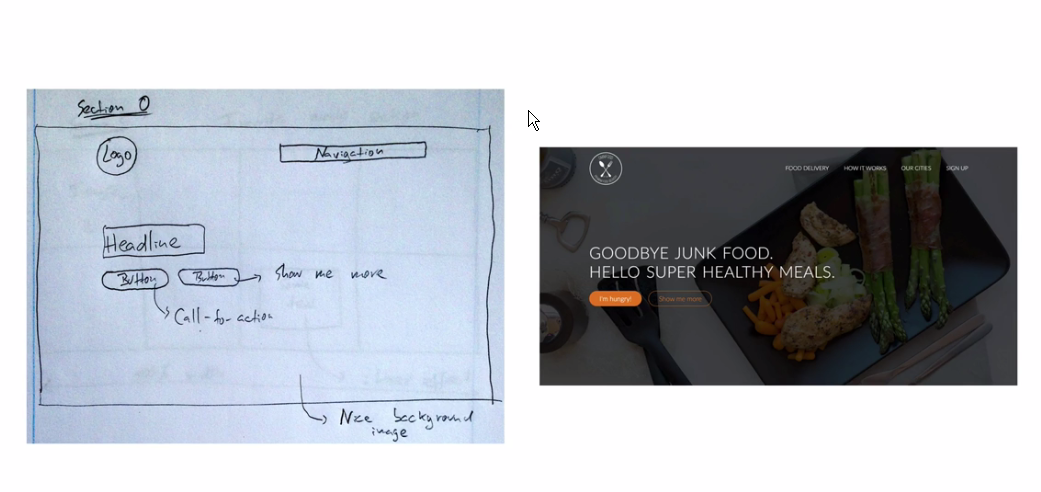 Section 0
Logo
Navigation
Headline
Button
Button
Show me more
Call-for-action
Nice background
image
FOOD DELIVERY HOW IT WORKS OUR CITIES SIGN UP
GOODBYE JUNK FOOD.
HELLO SUPER HEALTHY MEALS.
I'm hungry! Show me more